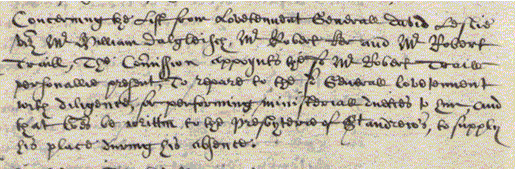 Concerning the Liss from Lovetennent Generall david Leslie
Mr William Dalgleish, Mr Robert Ker and Mr Robert
Traill, The Comission appoynts the sd Mr Robert Traill
personallie present, To repare to the sd Generall Lovetennent
with diligence, for performing ministeriall dueties to him And
that lres be written to the Presbyterie of St andrews, to supply
his place during his absence.